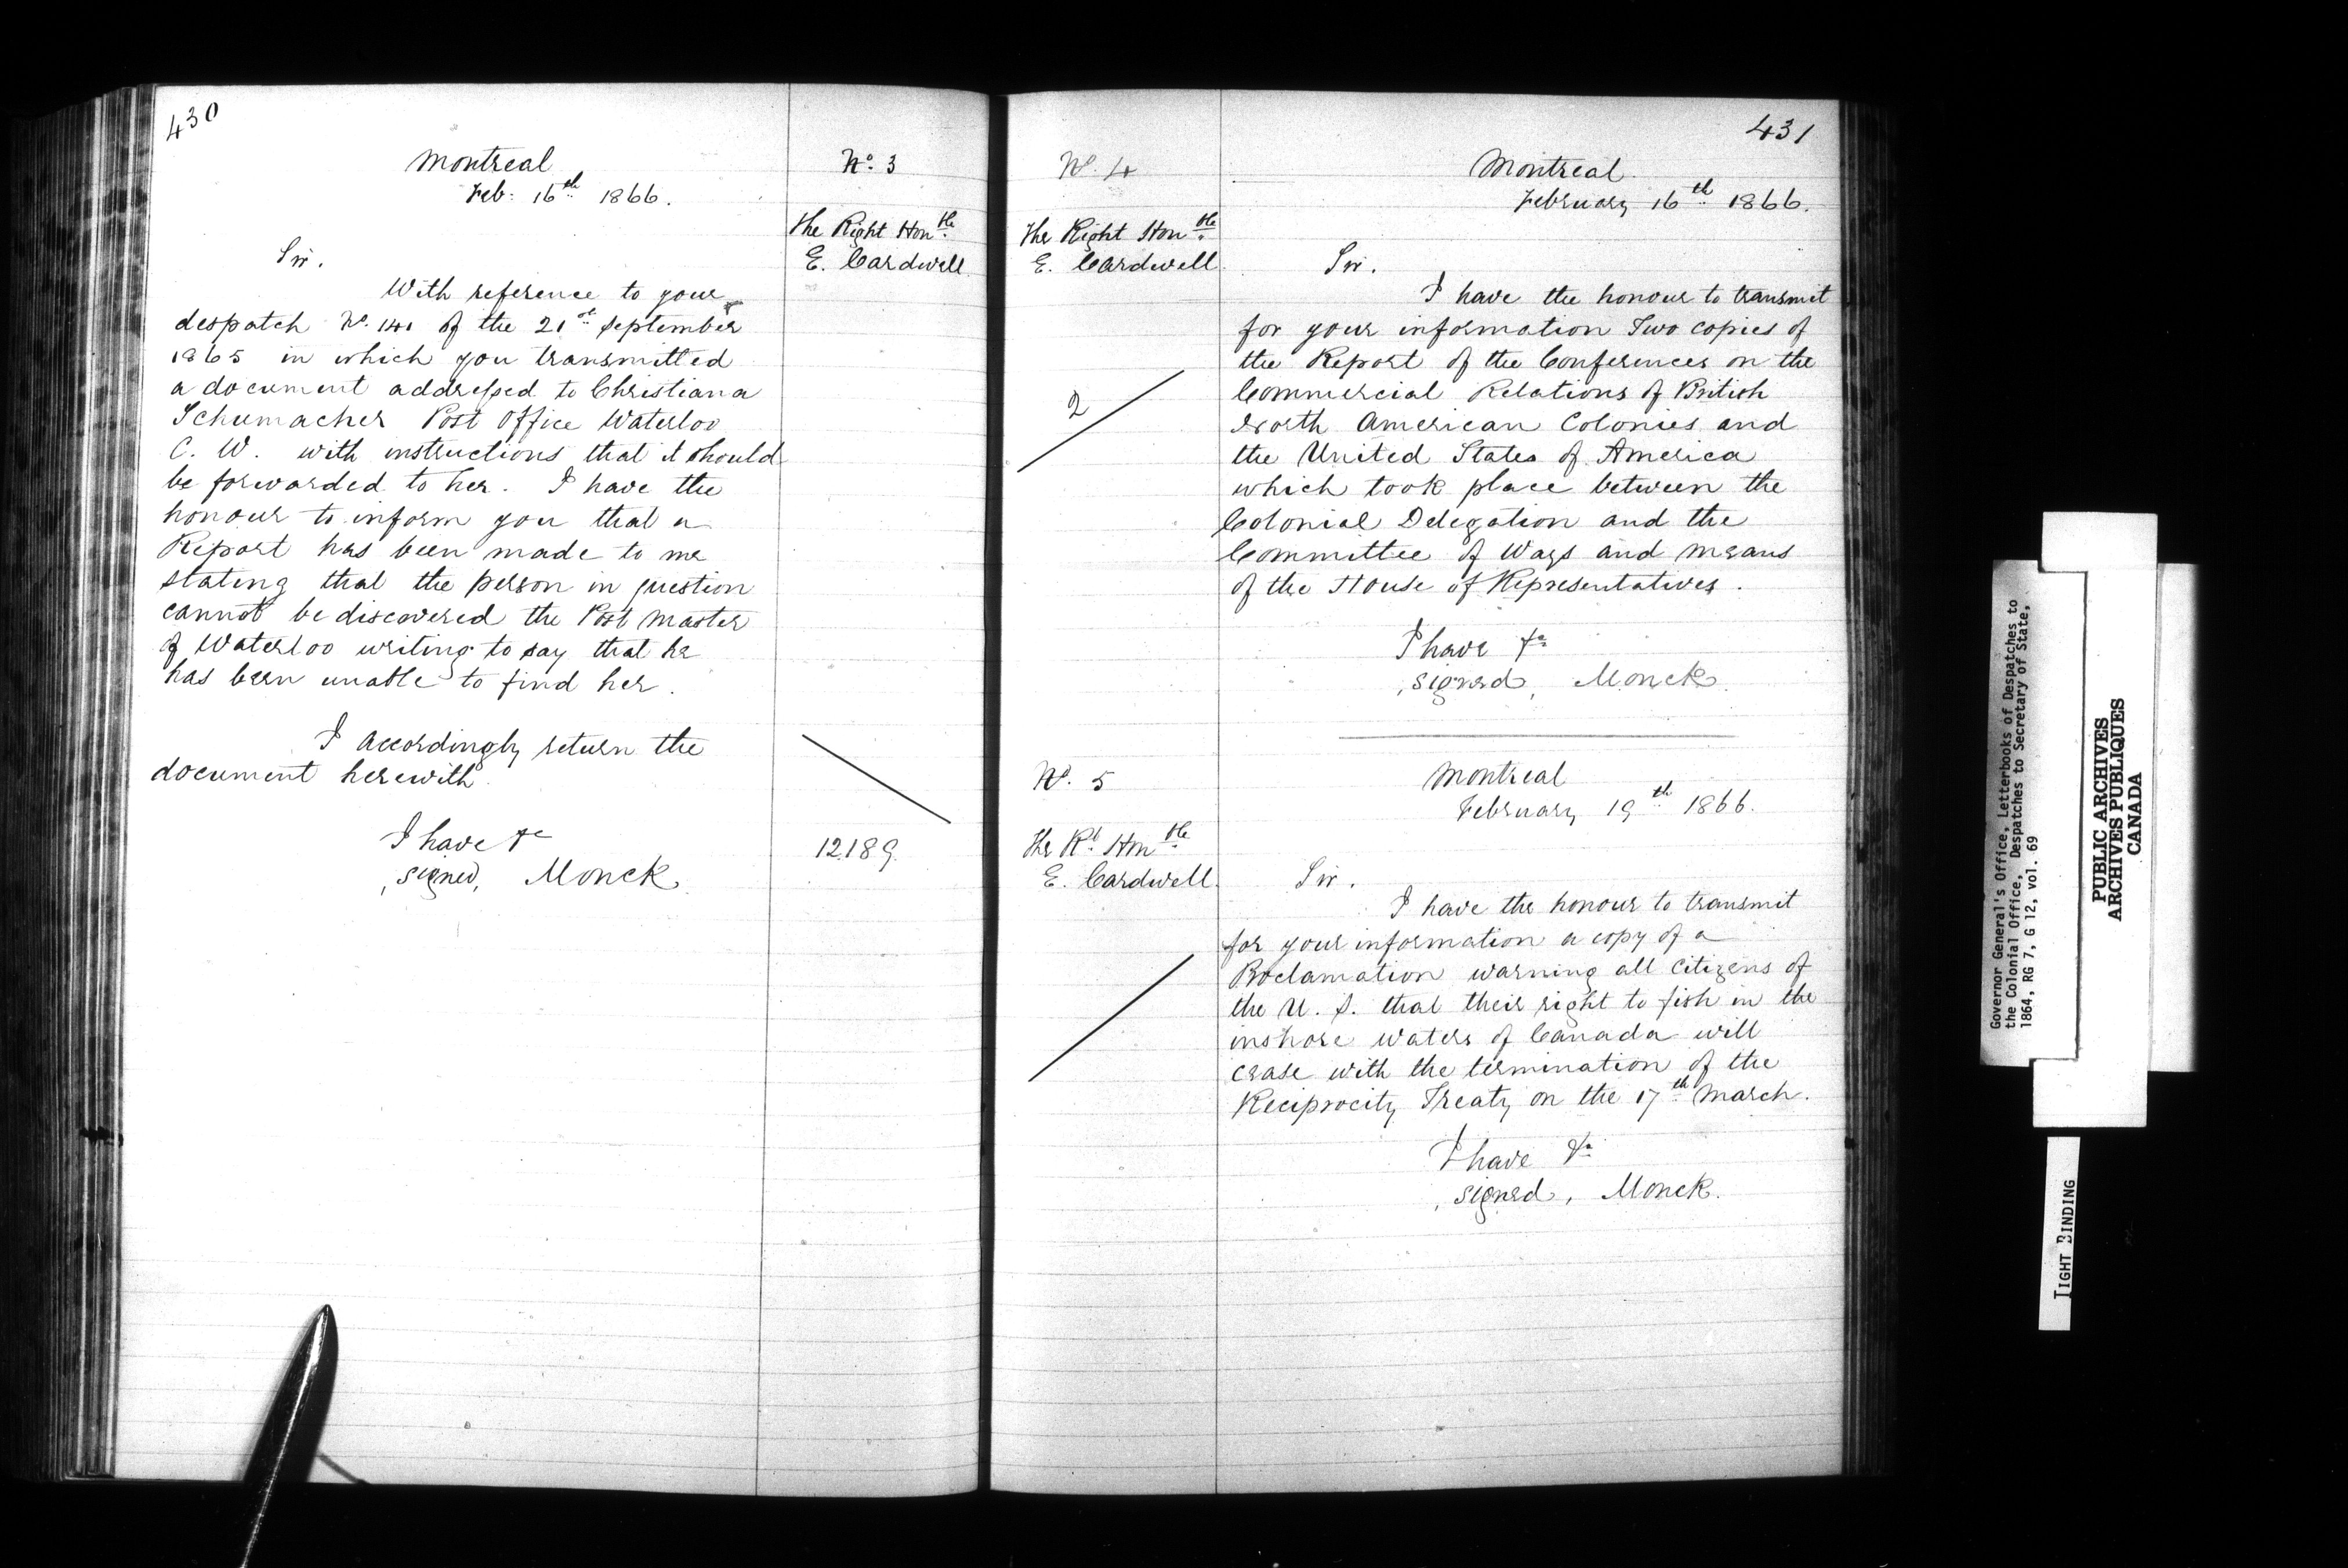 430
Montreal
Feb: 16th 1866.
No. 3
The Right Honble
E. Cardwell
Sir.
With reference to your
despatch No. 141 of the 21st September
1865 in which you transmitted
a document addressed to Christiana
Schumacher Post Office Waterloo
C. W. with instructions that it should
be forwarded to her. I have the
honour to inform you that a
Report has been made to me
stating that the person in question
cannot be discovered the Post Master
of Waterloo writing to say that he
has been unable to find her.
I accordingly return the
document herewith.
I have &c
signed, Monck
12189.
431
No. 4
The Right Honble
E. Cardwell
Montreal
February 16th 1866.
Sir.
I have the honour to transmit
for your information Two copies of
the Report of the Conferences on the
2
Commercial Relations of British
North American Colonies and
the United States of America
which took place between the
Colonial Delegation and the
Committee of Ways and Means
of the House of Representatives.
I have &c
signed, Monck
No. 5
The Rt Honble
E. Cardwell.
Montreal
February 19th 1866.
Sir.
I have the honour to transmit
for your information a copy of a
Proclamation warning all citizens of
the U. S. that their right to fish in the
inshore waters of Canada will
cease with the termination of the
Reciprocity Treaty on the 17th March.
I have &c
signed, Monck.
Governor General's Office, Letterbooks of Despatches to
the Colonial Office, Despatches to Secretary of State,
1864, RG 7, G 12, vol. 69
PUBLIC ARCHIVES
ARCHIVES PUBLIQUES
CANADA
TIGHT BINDING